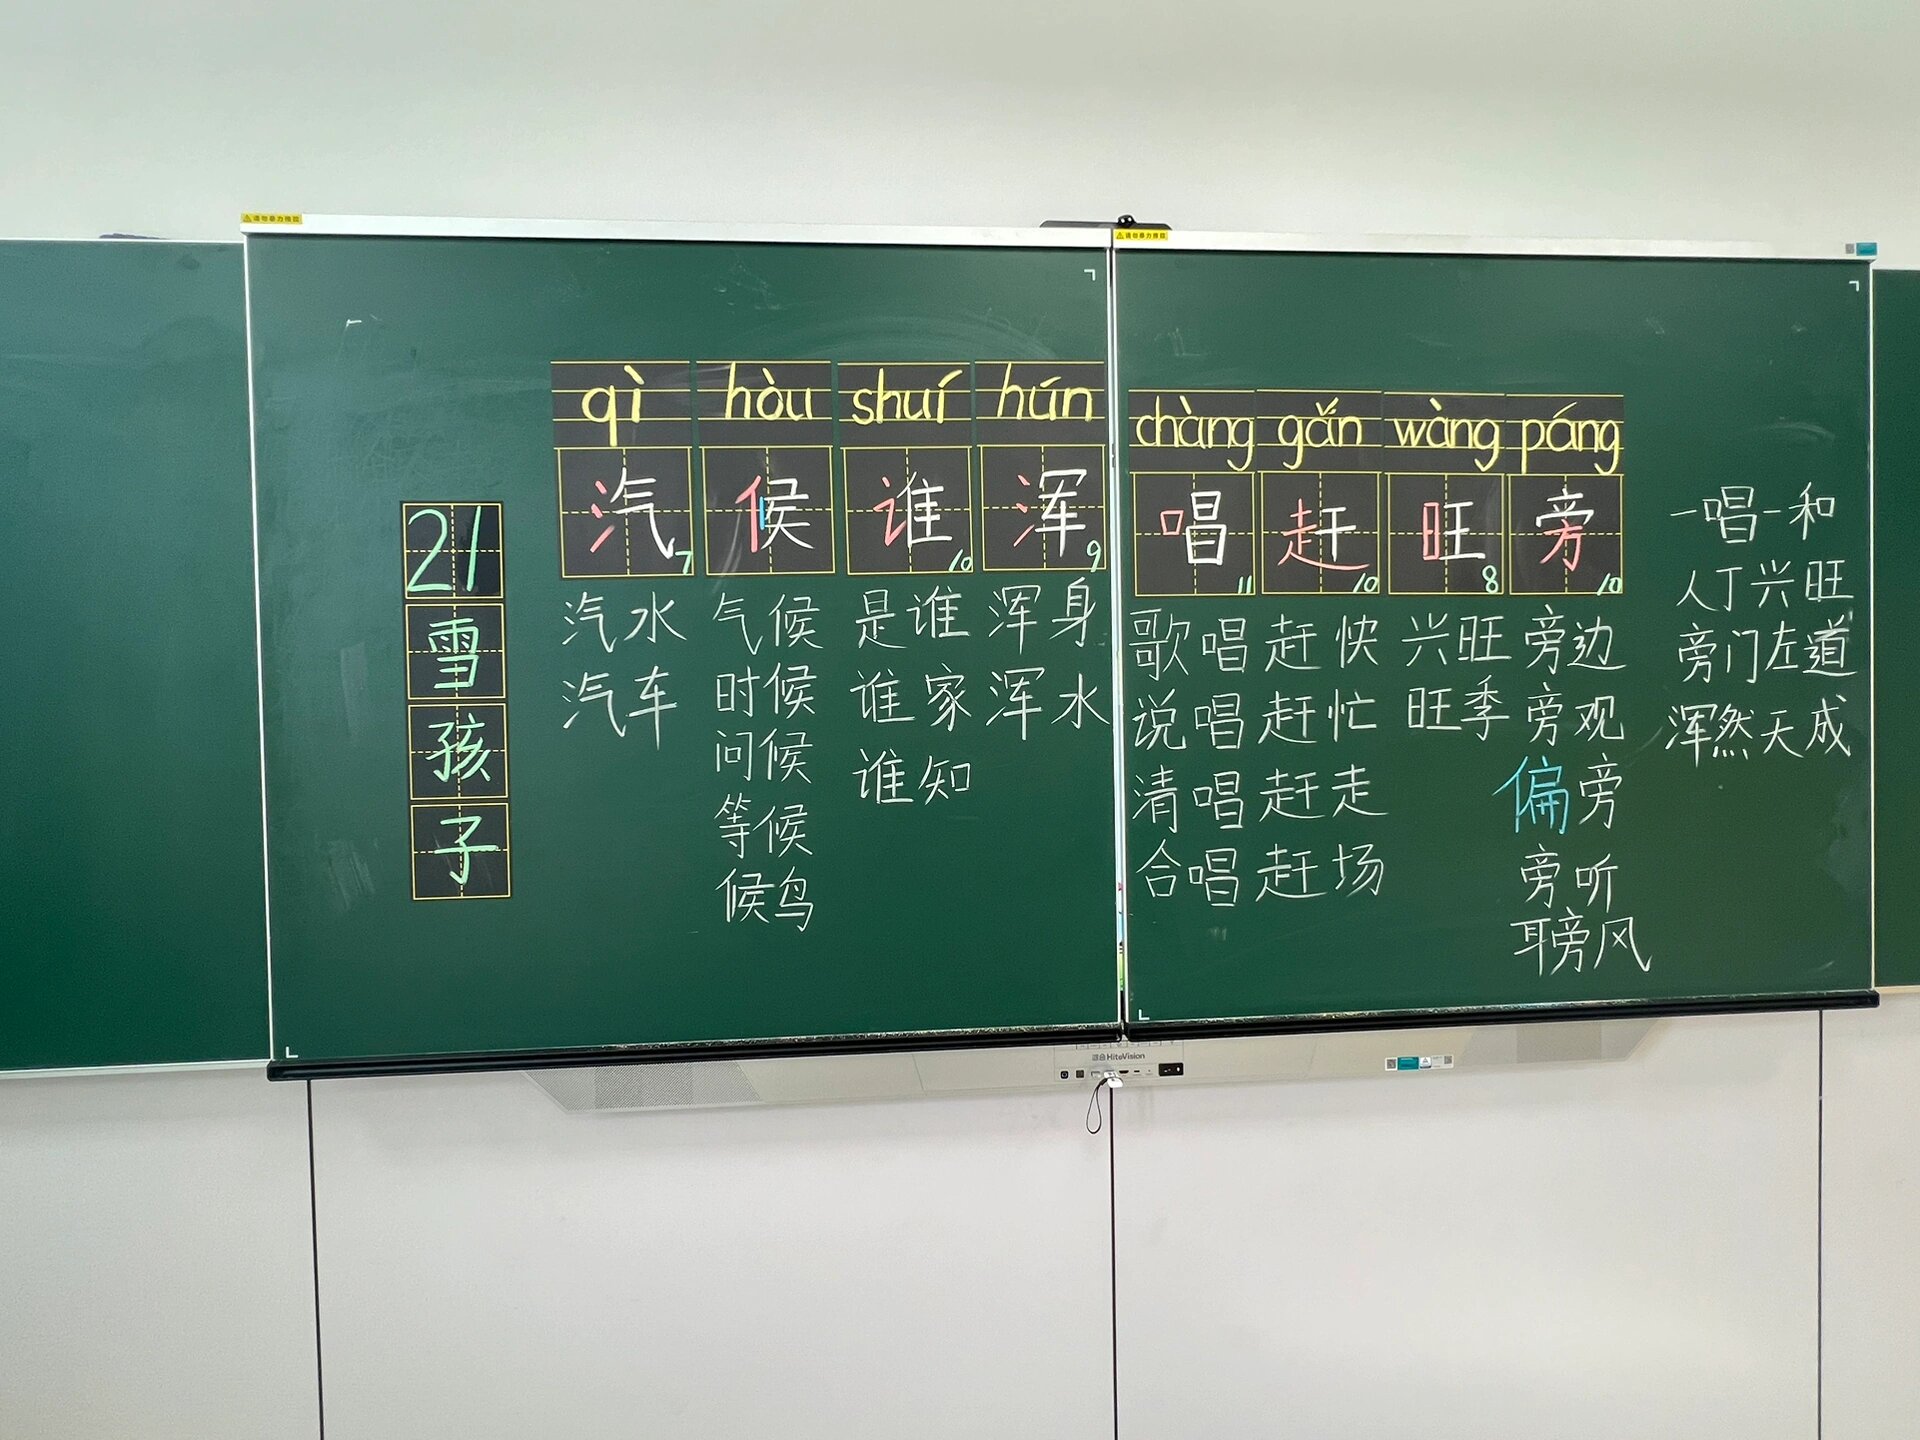 21
雪
孩
子
qì hòu shuí hún
汽 候 谁 浑
7 10 9
汽水 气候 是谁 浑身
汽车 时候 谁家 浑水
问候 谁知
等候
候鸟
chàng gǎn wàng páng
唱 赶 旺 旁
11 10 8 10
歌唱 赶快 兴旺 旁边
说唱 赶忙 旺季 旁观
清唱 赶走 偏旁
合唱 赶场 旁听
耳旁风
一唱一和
人丁兴旺
旁门左道
浑然天成
HiteVision